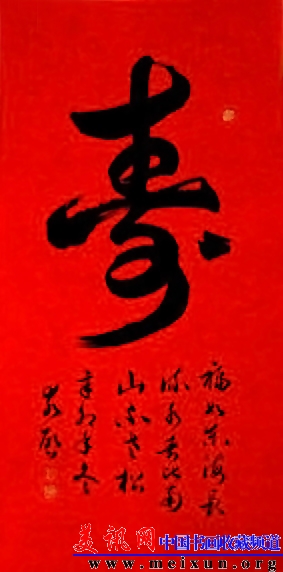 寿
福如东海长
流水寿比南
山不老松
辛卯年冬
美讯网 中国书画收藏频道
www.meixun.org